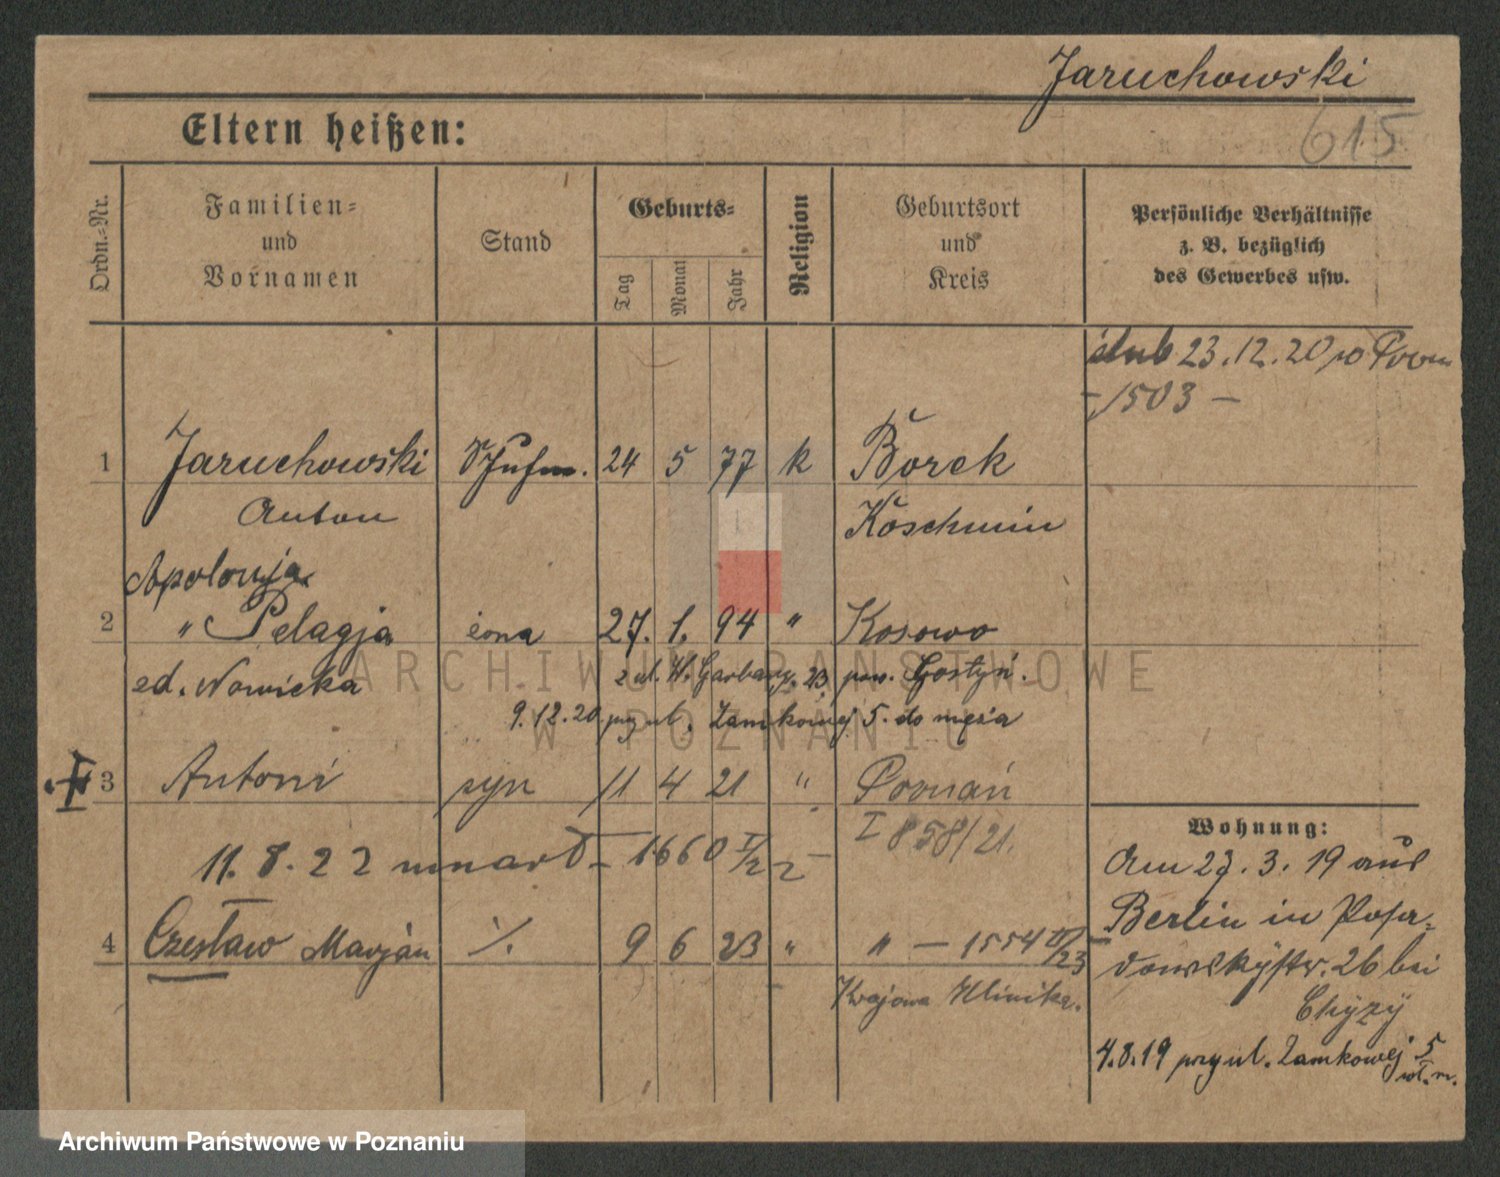 Jaruchowski
615
Eltern heißen:
Ordn.-Nr.
Familien-
und
Vornamen
Stand
Geburts-
Tag
Monat
Jahr
Religion
Geburtsort
und
Kreis
Persönliche Verhältnisse
z. B. bezüglich
des Gewerbes usw.
ślub 23.12.20 w Pozn
- 1503 -
1 Jaruchowski 24 5 77 k Borek
Anton Koschmin
Apolonja
2 " Pelagja żona 27. 1. 94 " Kosowo
ed. Nowicka z ul. W. Garbary 23 pow. Gostyń.
9.12.20 przy ul. Zamkowej 5. do męża
3 Antoni syn 11 4 21 " Poznań
I 858/21.
11.8.22 umarł - 1660 I/22 -
4 Czesław Marjan ./. 9 6 23 " " - 1554 II/23
Krajowa Klinika.
Wohnung:
Am 27.3.19 aus
Berlin in Posa-
dowskystr. 26 bei
Chyzy
4.8.19 przy ul. Zamkowej 5
ARCHIWUM PAŃSTWOWE
W POZNANIU
Archiwum Państwowe w Poznaniu